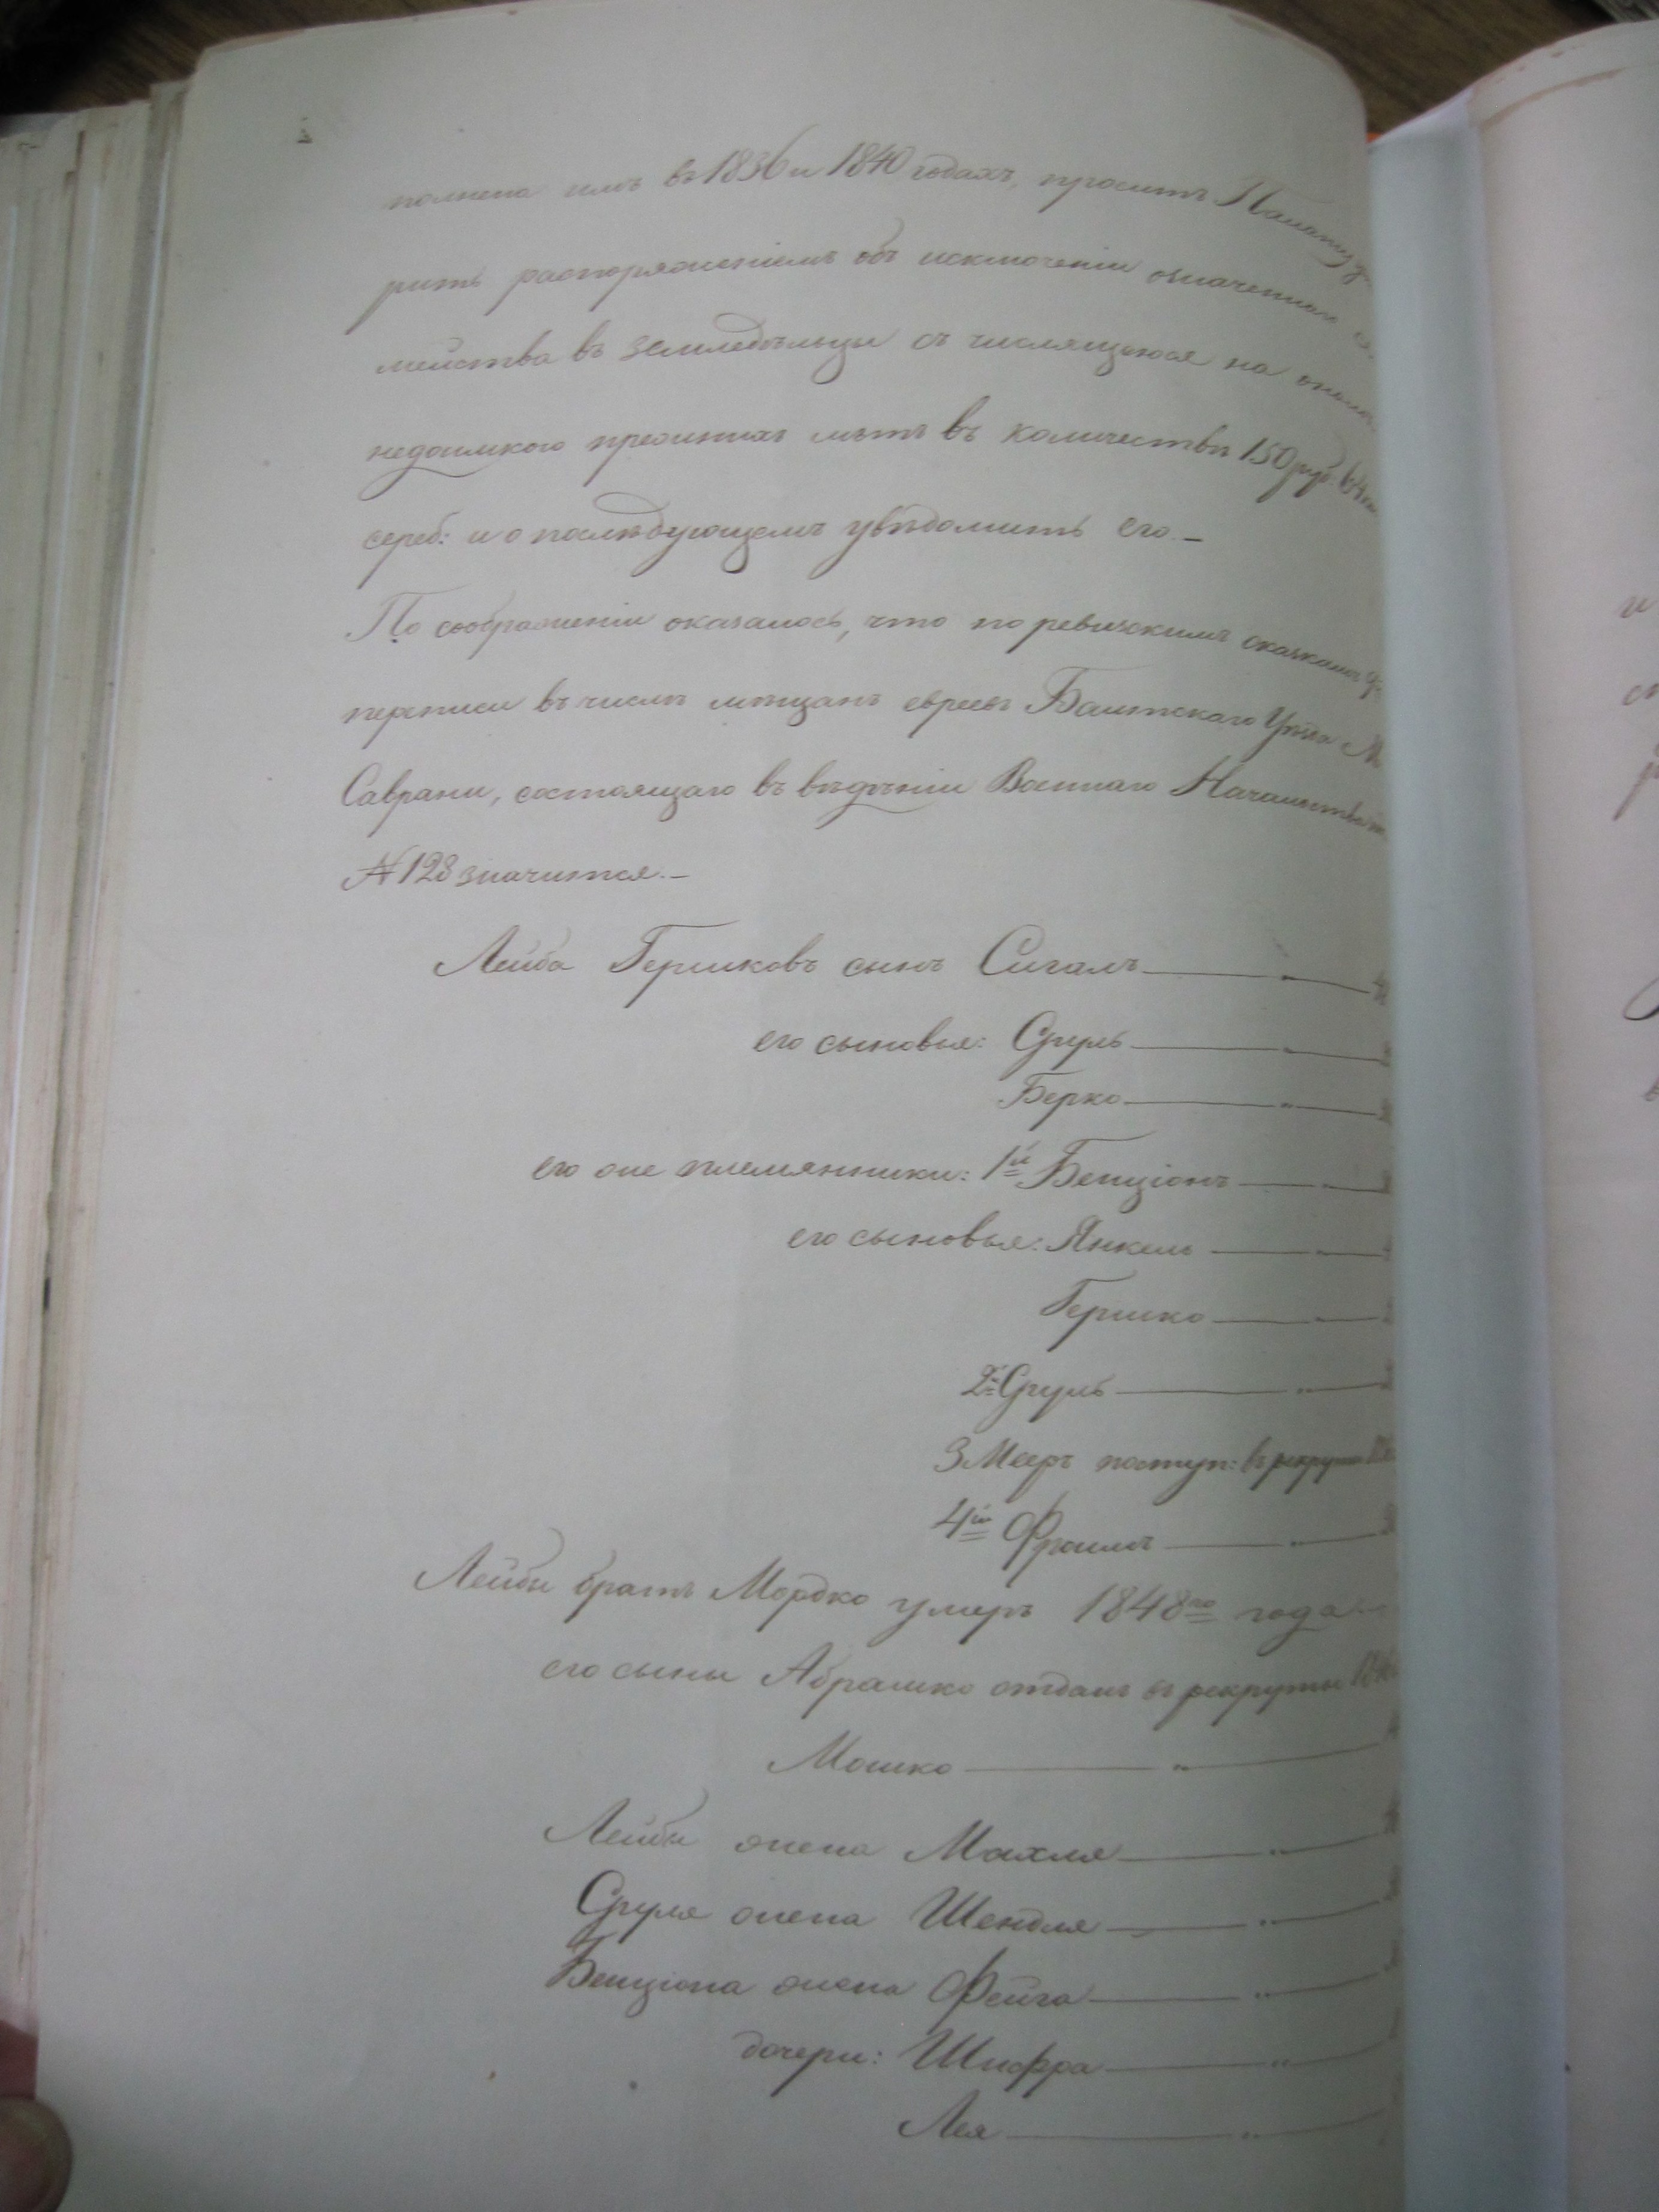 полнена имъ въ 1836 и 1840 годахъ, проситъ Палату
рить распоряженіемъ объ исключеніи означеннаго
мейства въ земледѣльцы съ числящеюся на
недоимкою прежнихъ лѣтъ въ количествѣ 150 руб. 64
сереб: и о послѣдующемъ увѣдомить его.–
По соображеніи оказалось, что по ревизскимъ сказкамъ
переписи въ числѣ мѣщанъ евреевъ Балтскаго Уѣзда М
Саврани, состоящаго въ вѣдѣніи Военнаго Начальства
№ 128 значится.–
Лейба Гершковъ сынъ Сигалъ
его сыновья: Сруль
Берко
его же племянники: 1й Бенціонъ
его сыновья: Янкель
Гершко
2й Сруль
3 Мееръ поступ: въ рекруты
4й Фроимъ
Лейбы братъ Мордко умеръ 1848го года
его сыны Абрашко отданъ въ рекруты
Мошко
Лейбы жена Махля
Сруля жена Шендля
Бенціона жена Фейга
дочери: Шифра
Лея